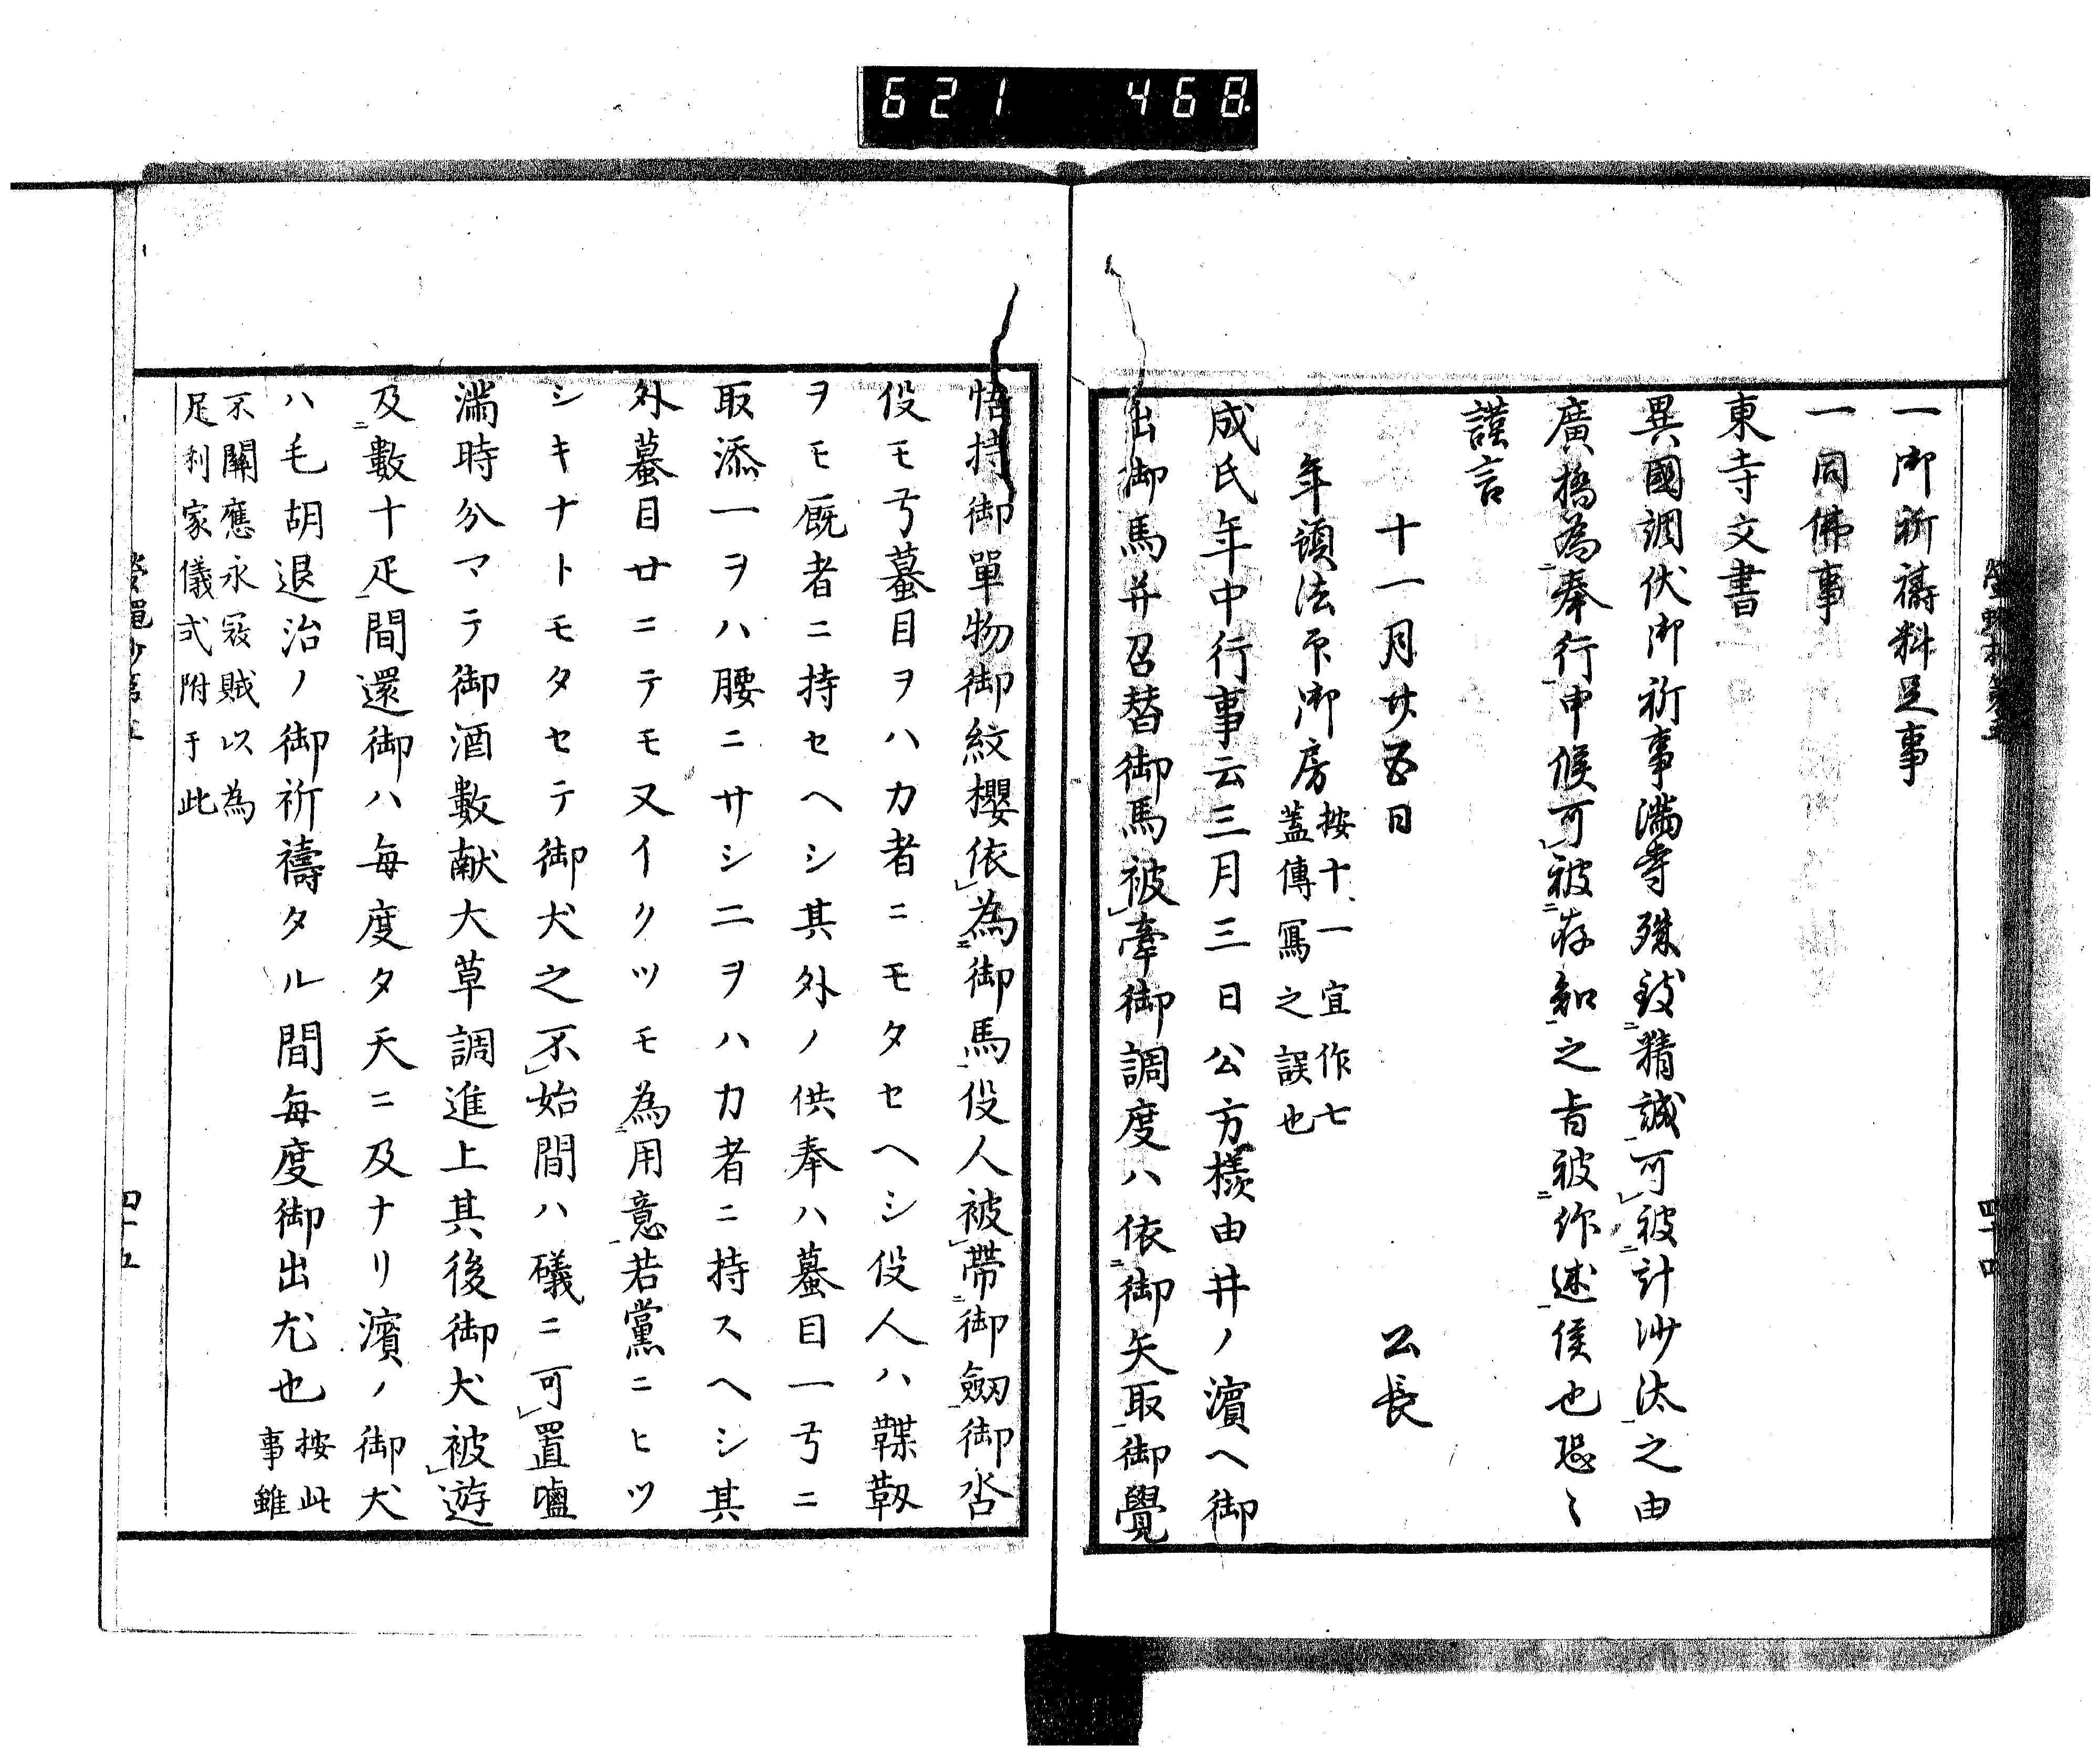 621 468
一御祈禱料足事
一同佛事
東寺文書
異國調伏御祈事滿寺殊致精誠可被計沙汰之由
廣橋為奉行申候可被存知之旨被仰述候也恐〻
謹言
十一月廿五日 公長
年預法印御房 按十一宜作七
蓋傳寫之誤也
成氏年中行事云三月三日公方樣由井ノ濱ヘ御
出御馬幷召替御馬被牽御調度ハ依御矢取御覺
悟持御單物御紋櫻依為御馬役人被帶御劔御沓
役モ弓蟇目ヲハカ者ニモタセヘシ役人ハ鞢靫
ヲモ厩者ニ持セヘシ其外ノ供奉ハ蟇目一弓ニ
取添一ヲハ腰ニサシ二ヲハカ者ニ持スヘシ其
外蟇目廿ニテモ又イクツモ為用意若黨ニヒツ
シキナトモタセテ御犬之不始間ハ礒ニ可置嚧
滿時分マテ御酒數献大草調進上其後御犬被遊
及數十疋間還御ハ每度タ天ニ及ナリ濱ノ御犬
ハ毛胡退治ノ御祈禱タル間每度御出尤也 按此
事雖
不關應永寇賊以為
足利家儀式附于此
四十四
四十五